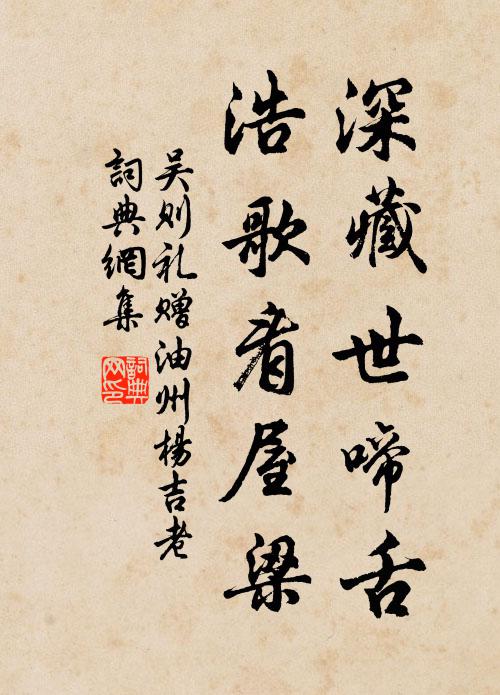 深藏世啼舌
浩歌看屋梁
吴则礼赠油州楊吉老
詞典網集
詞典网印